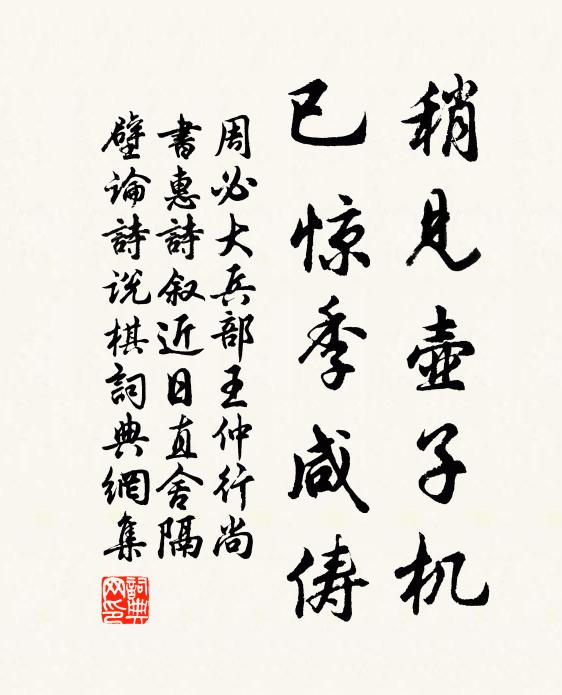 稍见壶子机
已惊季咸俦
周必大兵部王仲行尚
書惠詩叙近日直舍隔
壁論詩说棋詞典網集